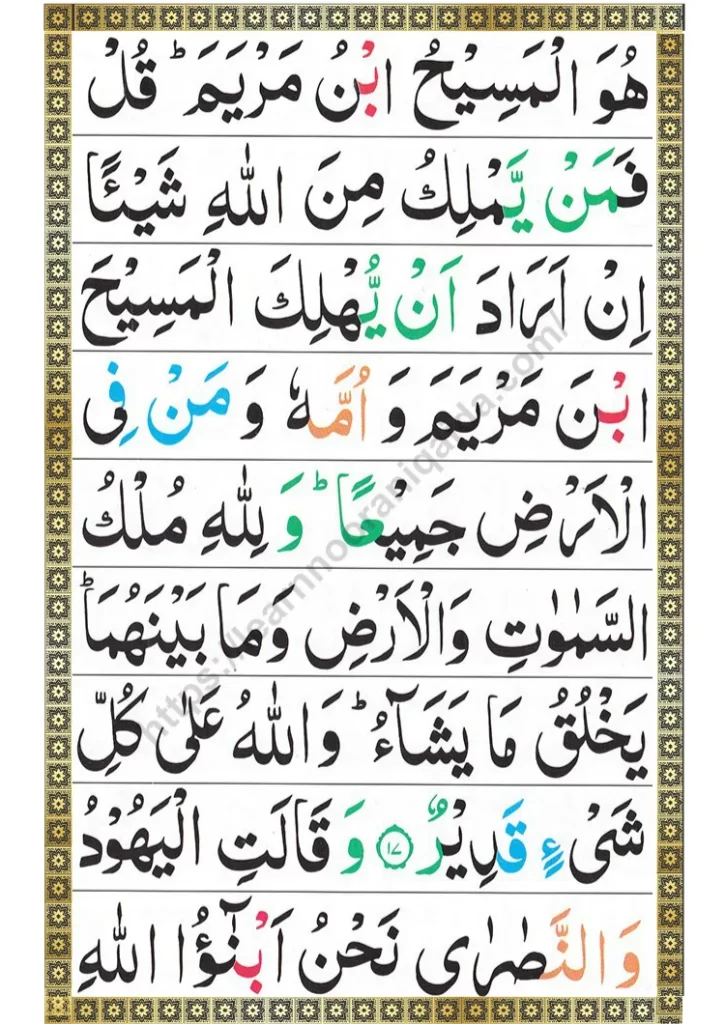 هُوَ الْمَسِيْحُ ابْنُ مَرْيَمَ ؕ قُلْ
فَمَنْ يَّمْلِكُ مِنَ اللّٰهِ شَيْـًٔا
اِنْ اَرَادَ اَنْ يُّهْلِكَ الْمَسِيْحَ
ابْنَ مَرْيَمَ وَ اُمَّهٗ وَ مَنْ فِى
الْاَرْضِ جَمِيْعًا ؕ وَ لِلّٰهِ مُلْكُ
السَّمٰوٰتِ وَالْاَرْضِ وَمَا بَيْنَهُمَا ؕ
يَخْلُقُ مَا يَشَآءُ ؕ وَاللّٰهُ عَلٰى كُلِّ
شَىْءٍ قَدِيْرٌ ۝۱۷ وَ قَالَتِ الْيَهُوْدُ
وَالنَّصٰرٰى نَحْنُ اَبْنٰٓؤُا اللّٰهِ
https://learnnooraniqaida.com/